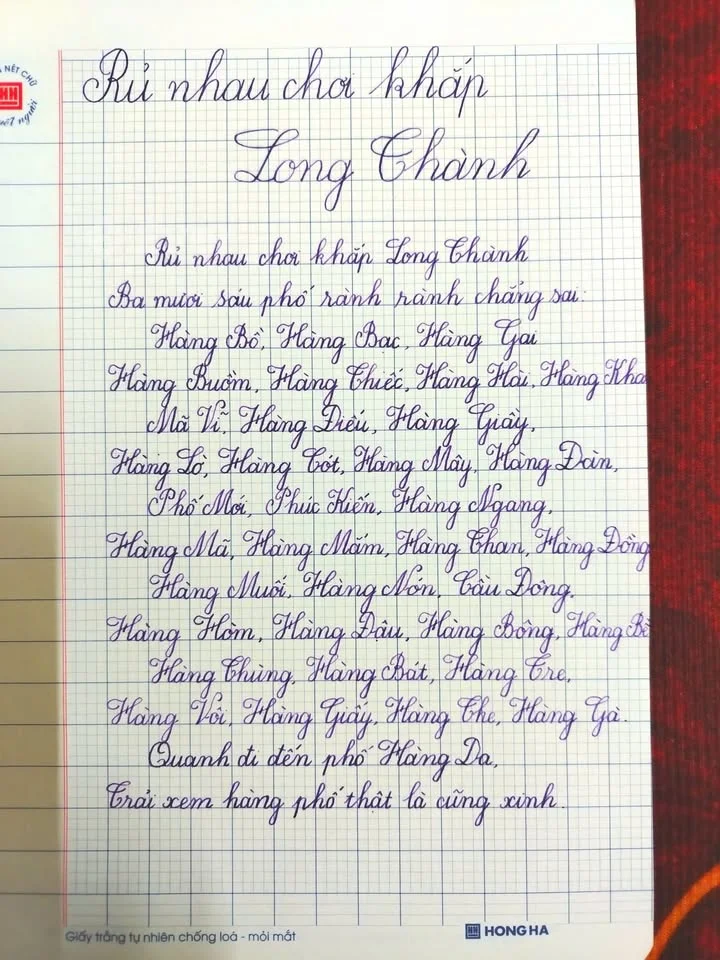 NÉT CHỮ
HH
nết người
Rủ nhau chơi khắp
Long Thành
Rủ nhau chơi khắp Long Thành
Ba mươi sáu phố rành rành chẳng sai:
Hàng Bồ, Hàng Bạc, Hàng Gai
Hàng Buồm, Hàng Thiếc, Hàng Hài, Hàng Kha
Mã Vĩ, Hàng Điếu, Hàng Giầy,
Hàng Lờ, Hàng Cót, Hàng Mây, Hàng Đàn,
Phố Mới, Phúc Kiến, Hàng Ngang,
Hàng Mã, Hàng Mắm, Hàng Than, Hàng Đồng
Hàng Muối, Hàng Nón, Cầu Đông,
Hàng Hòm, Hàng Đậu, Hàng Bông, Hàng Bè
Hàng Thùng, Hàng Bát, Hàng Tre,
Hàng Vôi, Hàng Giấy, Hàng The, Hàng Gà.
Quanh đi đến phố Hàng Da,
Trải xem hàng phố thật là cũng xinh.
Giấy trắng tự nhiên chống loá - mỏi mắt
HH HONG HA